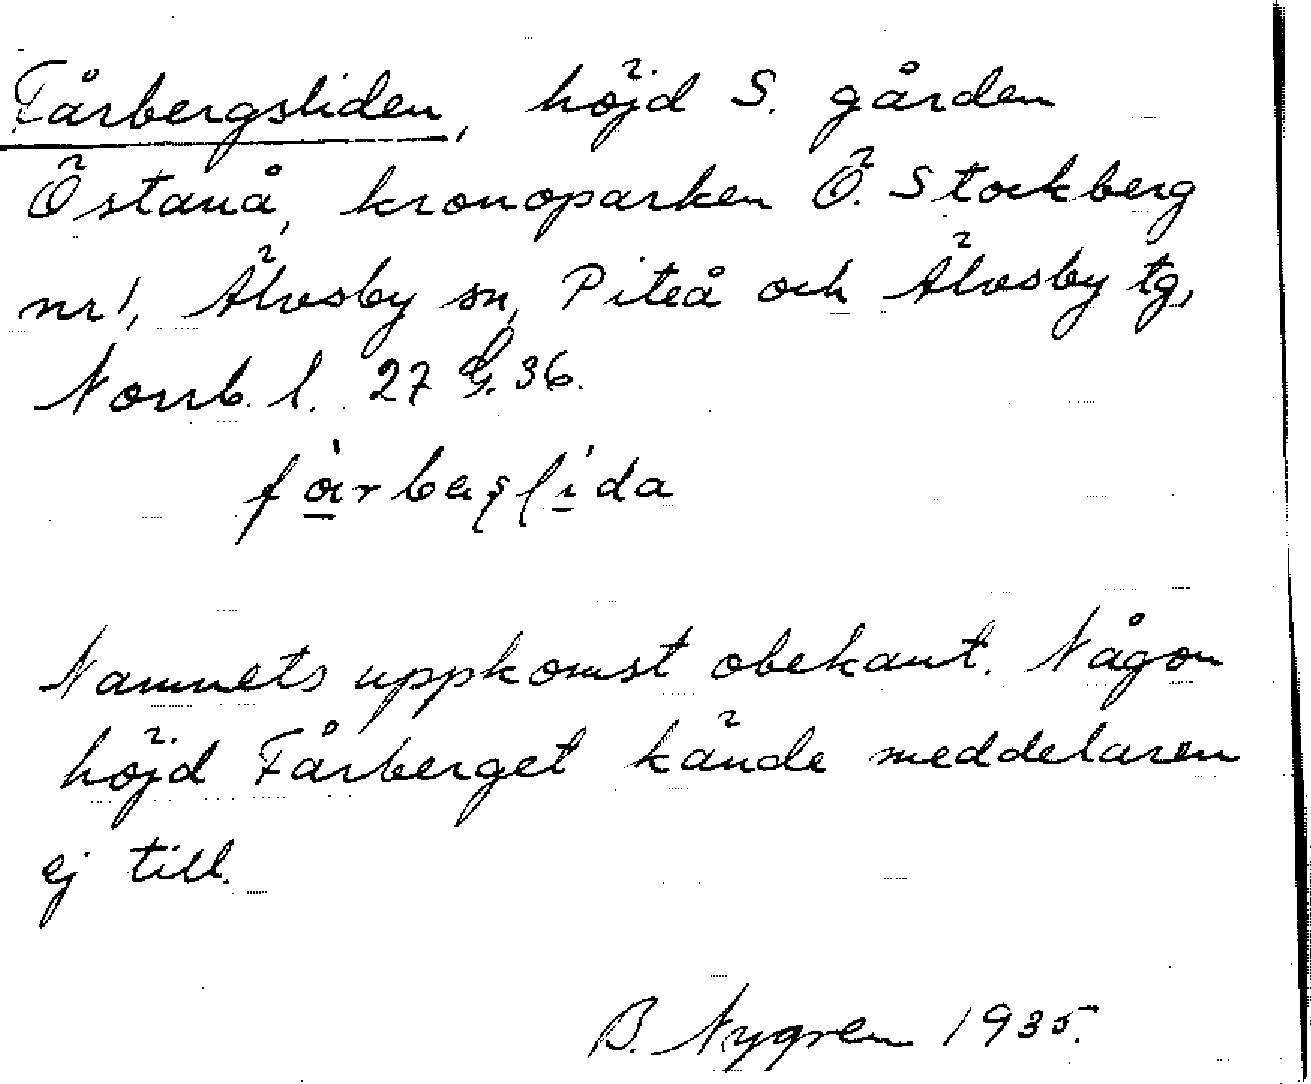 Fårbergsliden, höjd S. gården
Östanå, kronoparken Ö. Stockberg
nr 1, Älvsby sn, Piteå och Älvsby tg,
Norrb. l. 27 G. 36.
Namnets uppkomst obekant. Någon
höjd Fårberget kände meddelaren
ej till.
B. Nygren 1935.